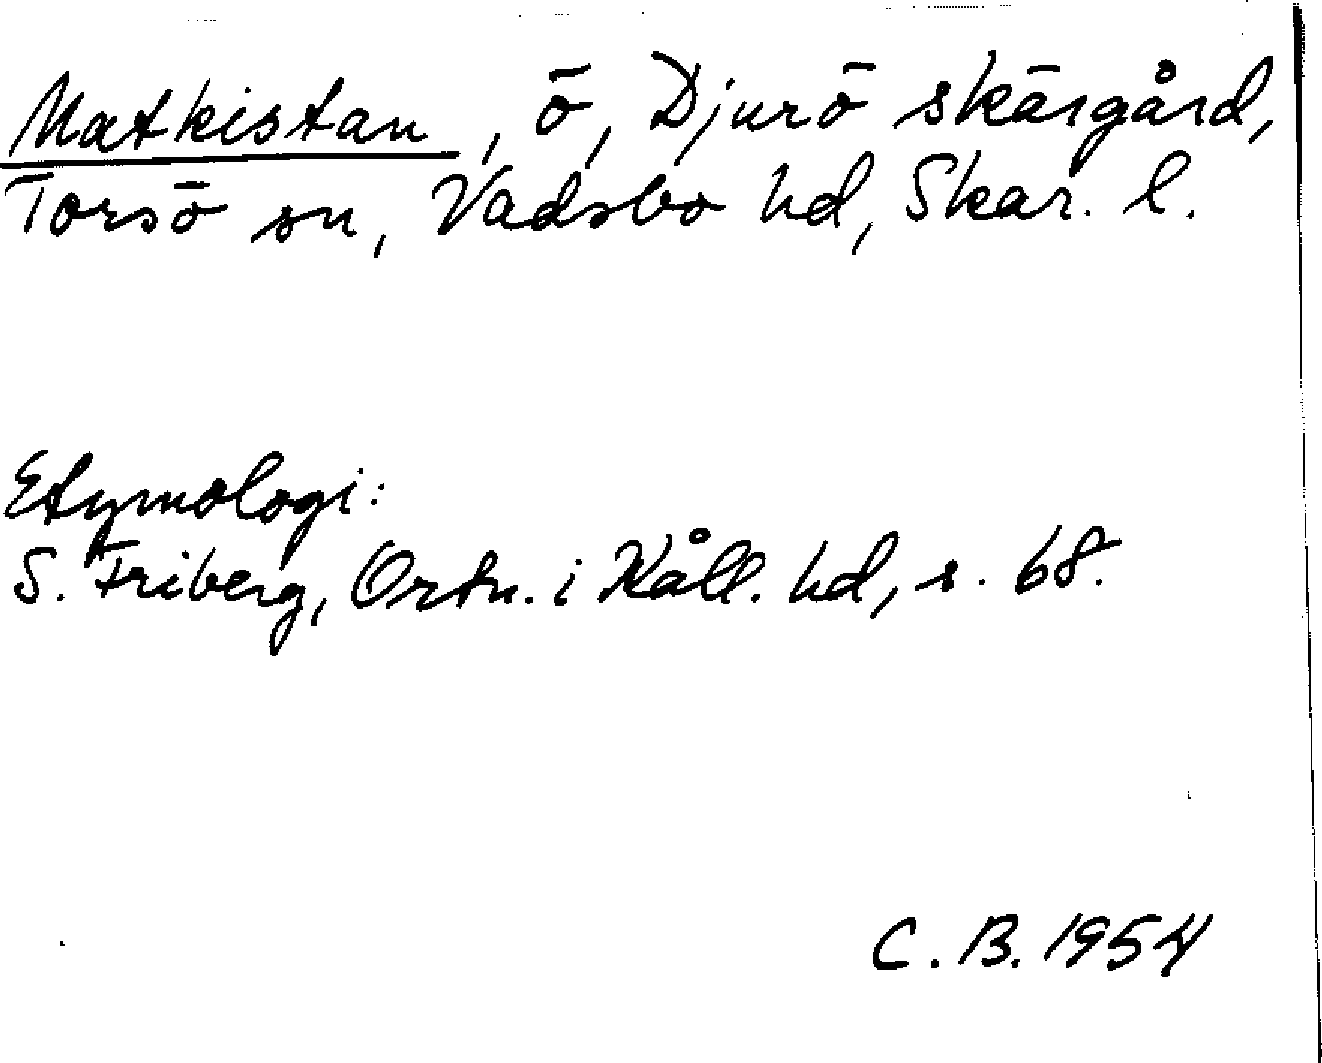 Matkistan, ö, Djurö skärgård,
Torsö sn, Vadsbo hd, Skar. l.
Etymologi:
S. Friberg, Ortn. i Kåll. hd, s. 68.
C. B. 1954